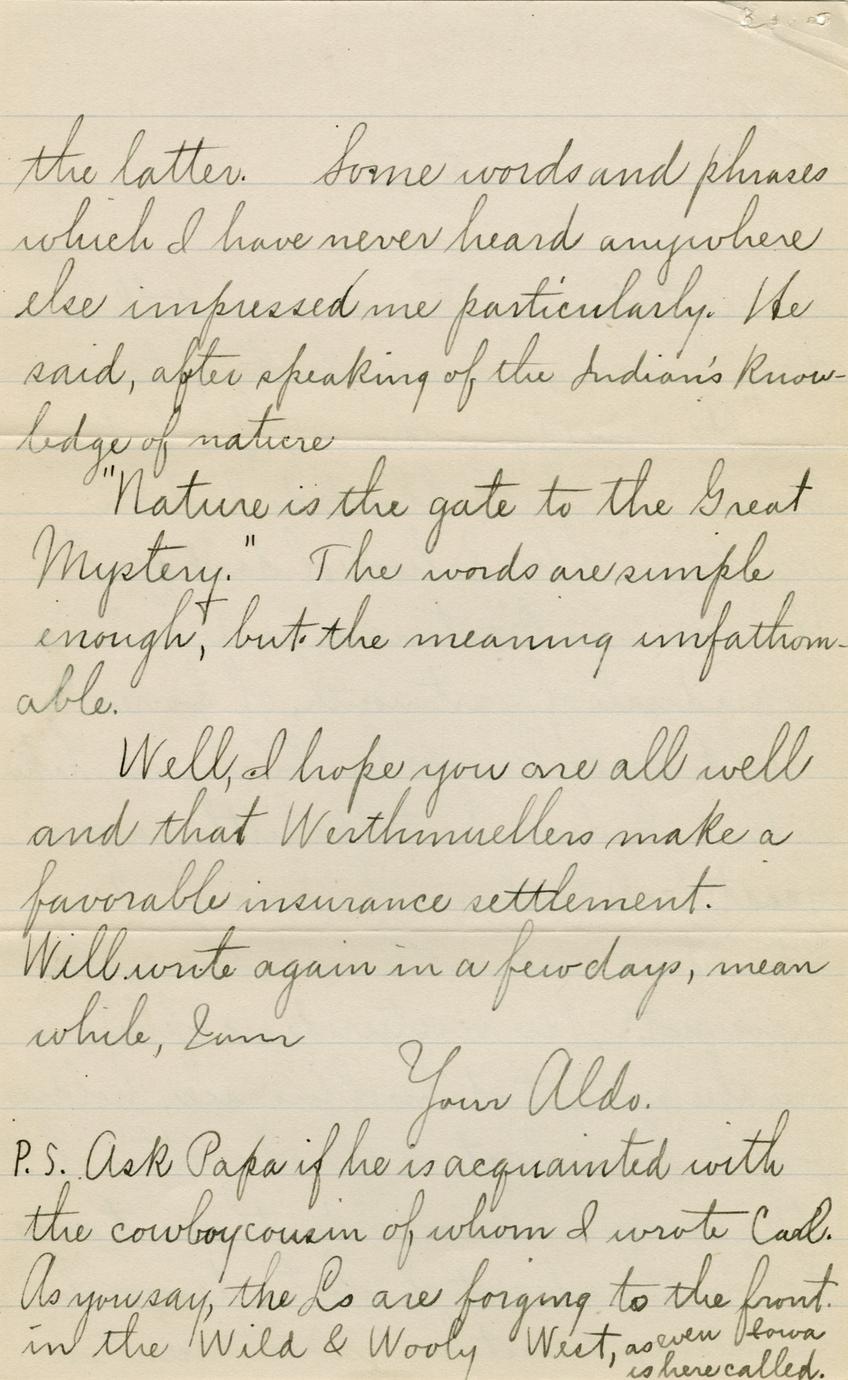 the latter. Some words and phrases
which I have never heard anywhere
else impressed me particularly. He
said, after speaking of the Indian's know-
ledge of nature
"Nature is the gate to the Great
Mystery." The words are simple
enough, but the meaning unfathom-
able.
Well, I hope you are all well
and that Werthmuellers make a
favorable insurance settlement.
Will write again in a few days, mean
while, I am
Your Aldo.
P.S. Ask Papa if he is acquainted with
the cowboy cousin of whom I wrote Carl.
As you say, the Ls are forging to the front
in the Wild & Wooly West, as even Iowa
is here called.